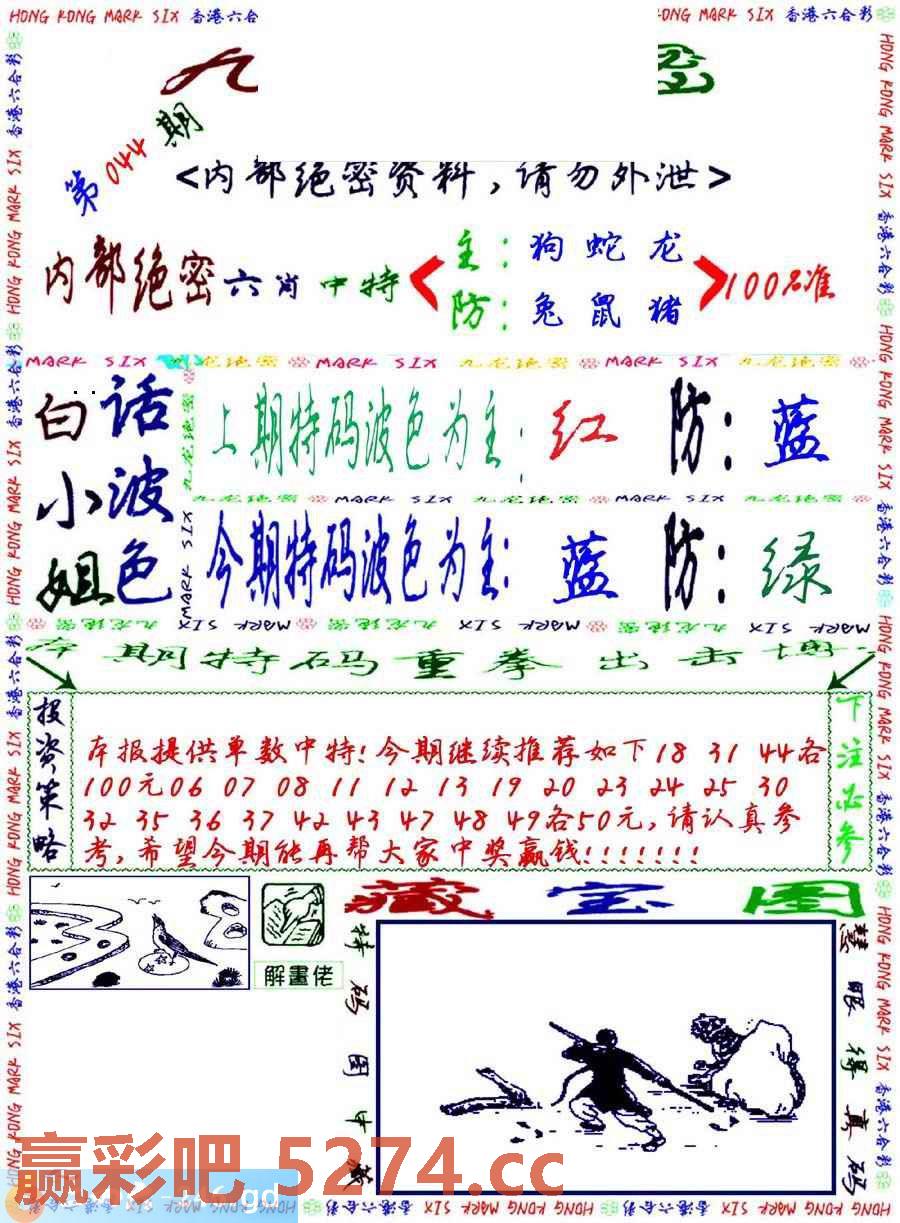 HONG KONG MARK SIX 香港六合
KONG MARK SIX 香港六合彩
九
第044期
<内部绝密资料,请勿外泄>
内部绝密六肖中特
主:狗蛇龙
防:兔鼠猪
100%准
MARK SIX 九龙绝密 MARK SIX 九龙绝密 MARK SIX 九龙绝密
白话
小波
姐色
上期特码波色为主:红 防:蓝
九龙绝密 MARK SIX 九龙绝密 MARK SIX 九龙绝密
今期特码波色为主:蓝 防:绿
MARK SIX 九龙绝密 MARK SIX 九龙绝密 MARK SIX
本期特码重拳出击
投资策略
本报提供单数中特!今期继续推荐如下18 31 44各
100元06 07 08 11 12 13 19 20 23 24 25 30
32 35 36 37 42 43 47 48 49各50元,请认真参
考,希望今期能再帮大家中奖赢钱!!!!!!!
下注必参
解畫佬
藏宝图
特码图中
慧眼得真码
赢彩吧 5274.cc
HONG KONG MARK SIX 香港六合彩